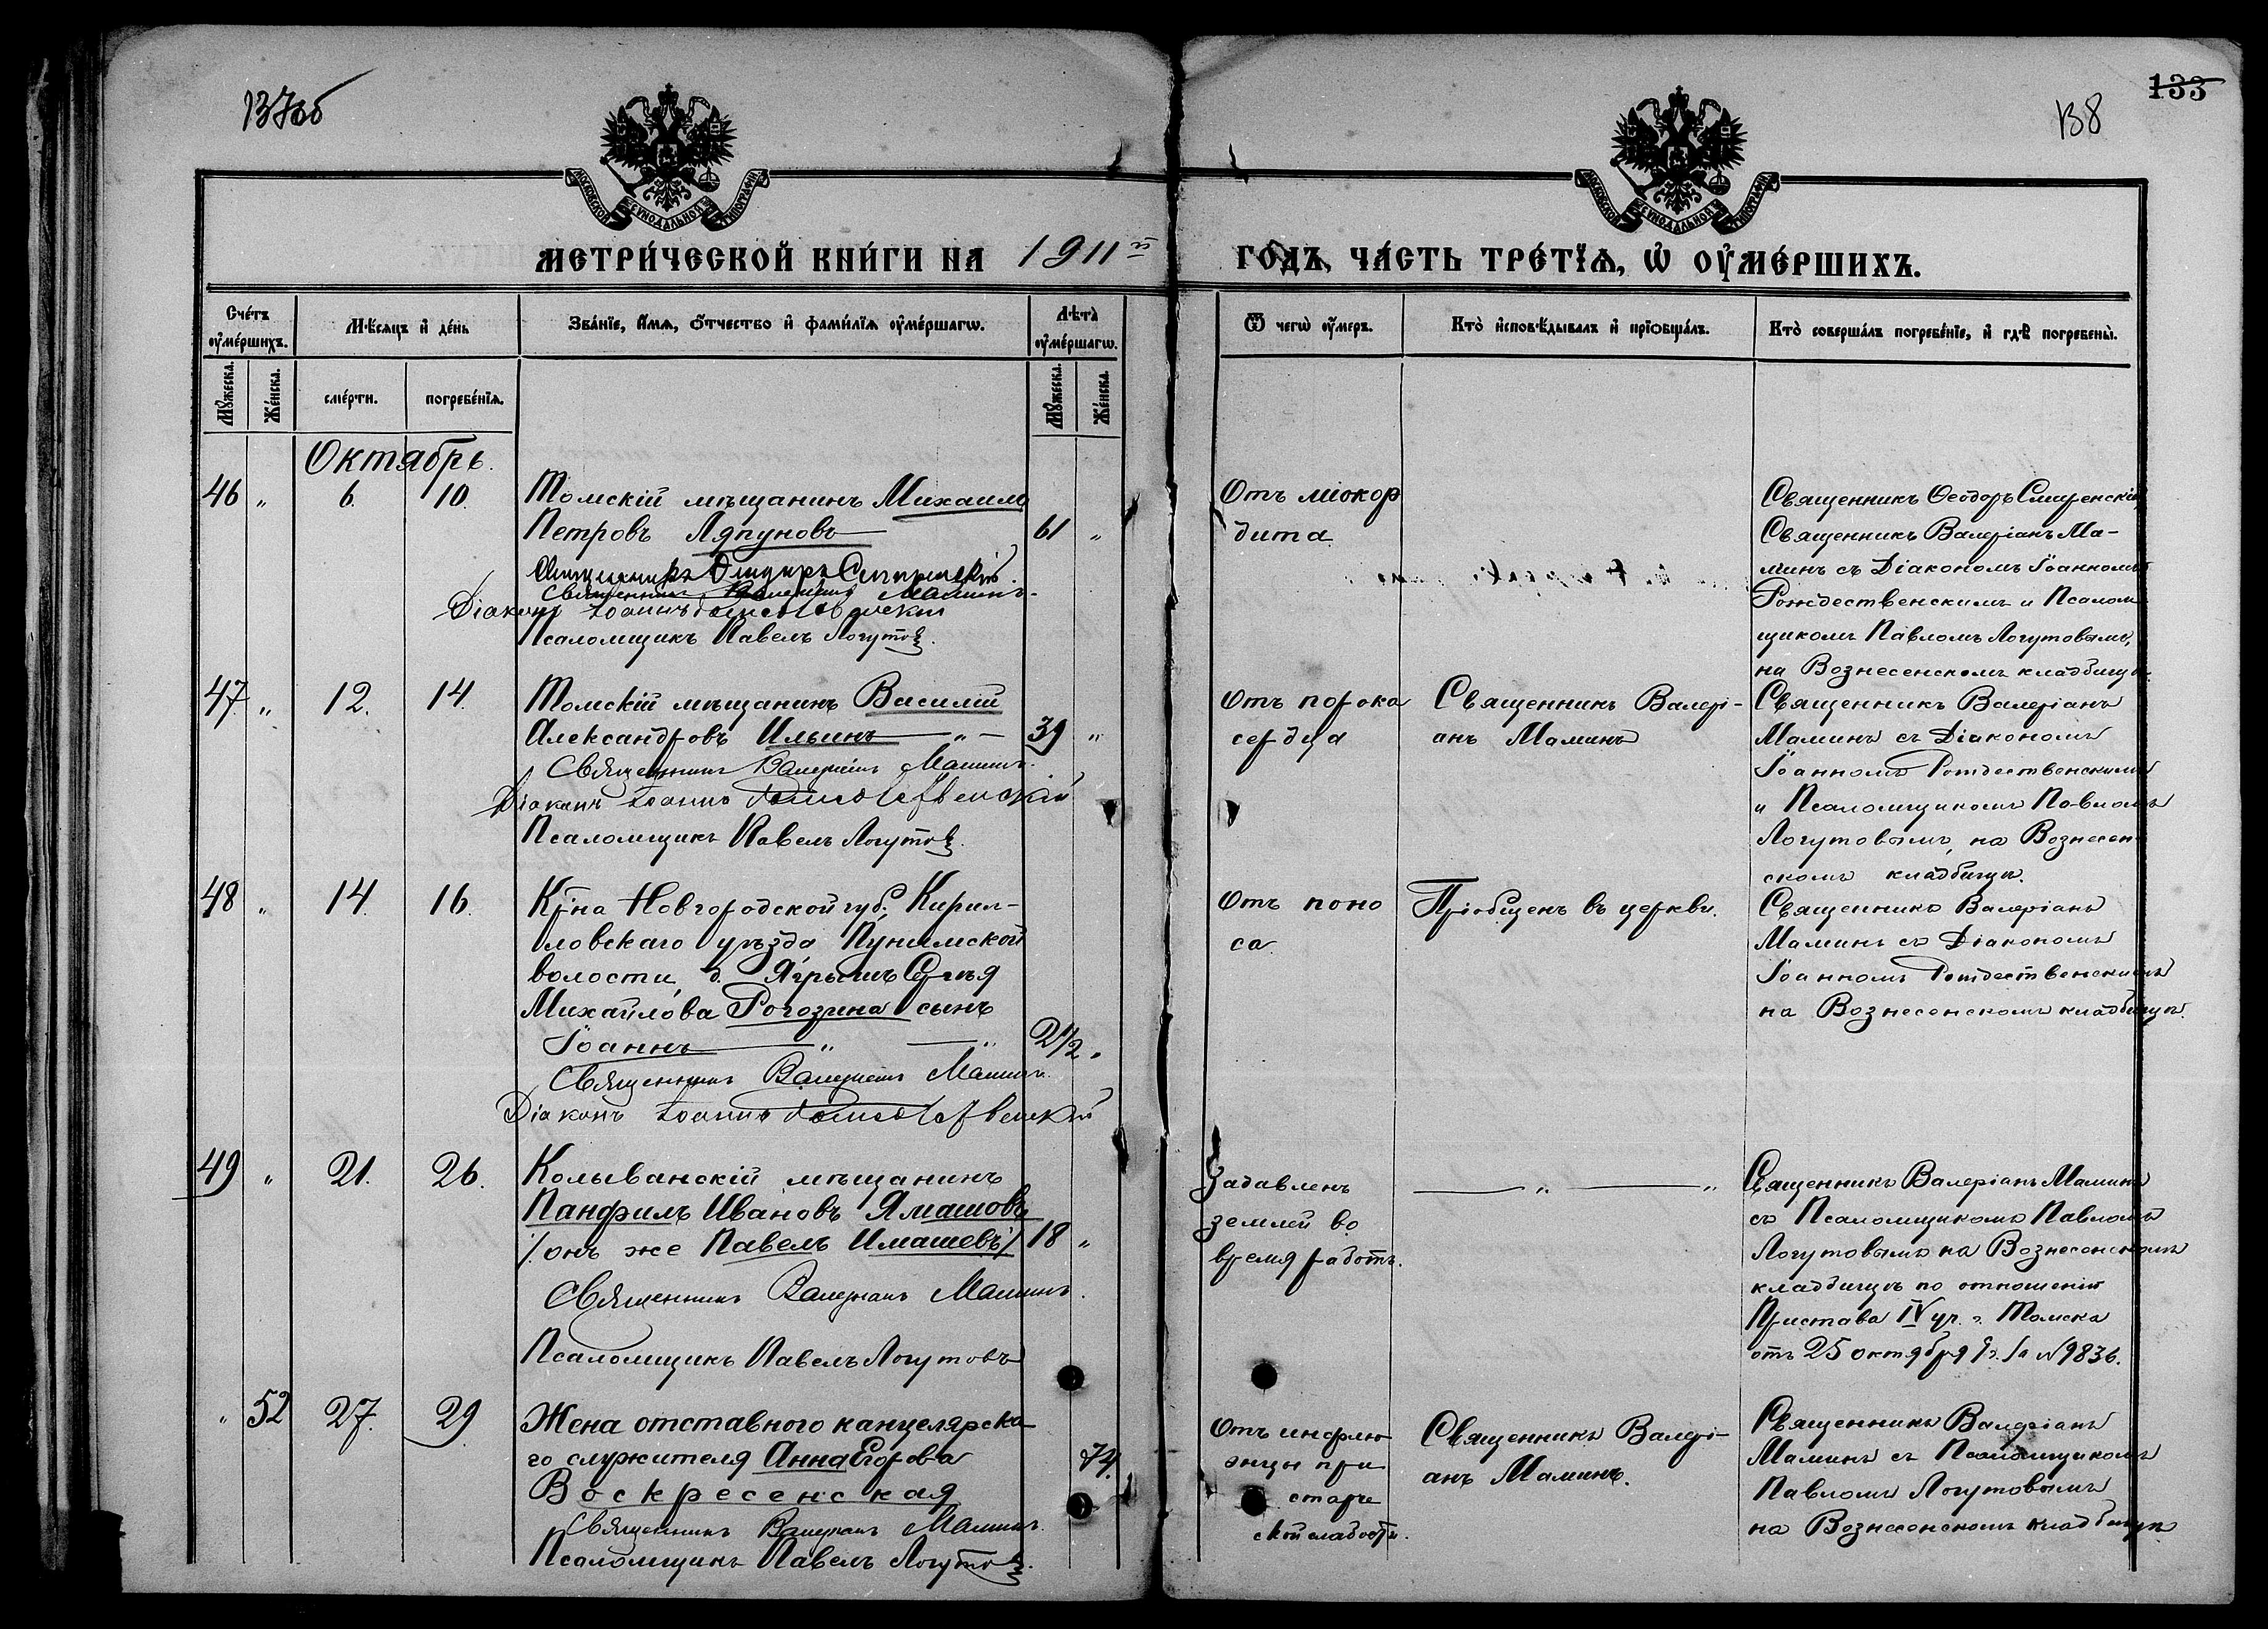 137об
133
138
МОСКОВСКОЙ СѴНОДАЛЬНОЙ ТИПОГРАФІИ
МОСКОВСКОЙ СѴНОДАЛЬНОЙ ТИПОГРАФІИ
МЕТРИ́ЧЕСКОЙ КНИ́ГИ НА 1911й ГОДЪ, ЧА́СТЬ ТРЕ́ТЇѦ, Ѡ҆ ОУ҆МЕ́РШИХЪ.
Счетъ оу҆ме́ршихъ.
Мѣ́сяцъ и҆ де́нь
Зва́нїе, и҆́мѧ, ѻ҆́тчество и҆ фами́лїѧ оу҆ме́ршагѡ.
Лѣта̀ оу҆ме́ршагѡ.
Ѿ чегѡ̀ оу҆́меръ.
Кто̀ и҆сповѣ́дывалъ и҆ прїѡбща́лъ.
Кто̀ соверша́лъ погребе́нїе, и҆ гдѣ̀ погребены̀.
Мꙋ́жеска.
Же́нска.
сме́рти.
погребе́нїѧ.
Мꙋ́жеска.
Же́нска.
Октябрь.
46 „ 6. 10.
Томскій мѣщанинъ Михаилъ
Петровъ Ляпуновъ 61 „
Священникъ Ѳеодоръ Смиренскій.
Священникъ Валеріанъ Маминъ.
Діаконъ Іоаннъ Рождественскій
Псаломщикъ Павелъ Логутовъ.
Отъ міокор
дита
Священникъ Ѳеодоръ Смиренскій,
Священникъ Валеріанъ Ма-
минъ съ Діакономъ Іоанномъ
Рождественскимъ и Псалом
щикомъ Павломъ Логутовымъ,
на Вознесенскомъ кладбищѣ.
47 „ 12. 14.
Томскій мѣщанинъ Василій
Александровъ Ильинъ — „ — 39 „
Священникъ Валеріанъ Маминъ.
Діаконъ Іоаннъ Рождественскій
Псаломщикъ Павелъ Логутовъ.
Отъ порока
сердца
Священникъ Валері-
анъ Маминъ
Священникъ Валеріанъ
Маминъ съ Діакономъ
Іоанномъ Рождественскимъ
и Псаломщикомъ Павломъ
Логутовымъ, на Вознесен
скомъ кладбищѣ.
48 „ 14. 16.
Кр-на Новгородской губ., Кирил-
ловскаго уѣзда Пунемской
волости, д. Ягрышъ Сергѣя
Михайлова Рогозина сынъ
Іоаннъ — „ — „ 2½ „
Священникъ Валеріанъ Маминъ.
Діаконъ Іоаннъ Рождественскій
Отъ поно
са
Пріобщенъ въ церкви.
Священникъ Валеріанъ
Маминъ съ Діакономъ
Іоанномъ Рождественскимъ
на Вознесенскомъ кладбищѣ.
49 „ 21. 26.
Колыванскій мѣщанинъ
Панфилъ Ивановъ Ямашовъ
/. онъ же Павелъ Имашевъ ./ 18 „
Священникъ Валеріанъ Маминъ.
Псаломщикъ Павелъ Логутовъ
Задавленъ
землей во
время работъ.
— „ — „
Священникъ Валеріанъ Маминъ
съ Псаломщикомъ Павломъ
Логутовымъ на Вознесенскомъ
кладбищѣ по отношенію
Пристава IV уч. г. Томска
отъ 25 октября за №9836.
„ 52 27. 29
Жена отставного канцелярска-
го служителя Анна Егорова
Воскресенская 74.
Священникъ Валеріанъ Маминъ.
Псаломщикъ Павелъ Логутовъ.
Отъ инфлю
энцы при
старче
ской слабости.
Священникъ Валері-
анъ Маминъ.
Священникъ Валеріанъ
Маминъ съ Псаломщикомъ
Павломъ Логутовымъ
на Вознесенскомъ кладбищѣ